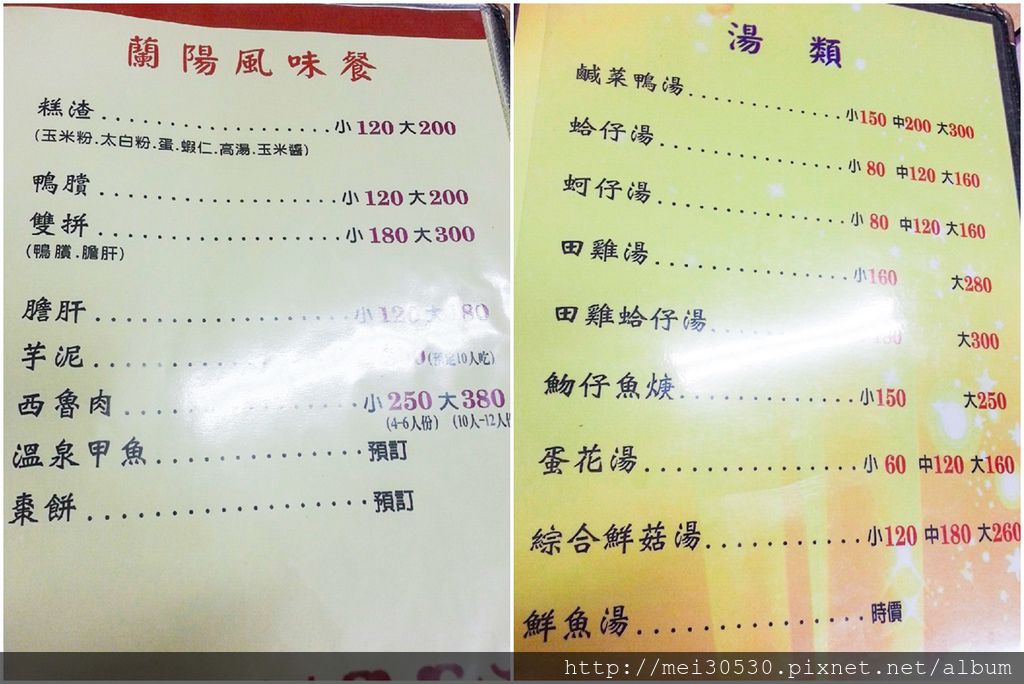 蘭陽風味餐
糕渣..................小120 大200
(玉米粉.太白粉.蛋.蝦仁.高湯.玉米醬)
鴨臏..................小120 大200
雙拼..................小180 大300
(鴨臏.膽肝)
膽肝..................小120 大180
芋泥..................(預定10人吃)
西魯肉..................小250 大380
(4-6人份) (10人-12人份
溫泉甲魚..................預訂
棗餅..................預訂
湯類
鹹菜鴨湯..................小150 中200 大300
蛤仔湯..................小80 中120 大160
蚵仔湯..................小80 中120 大160
田雞湯..................小160 大280
田雞蛤仔湯..................大300
魩仔魚焿..................小150 大250
蛋花湯..................小60 中120 大160
綜合鮮菇湯..................小120 中180 大260
鮮魚湯..................時價
http://mei30530.pixnet.net/album